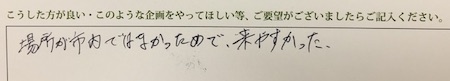 こうした方が良い・このような企画をやってほしい等、ご要望がございましたらご記入ください。
場所が市内ではまかったので、来やすかった。